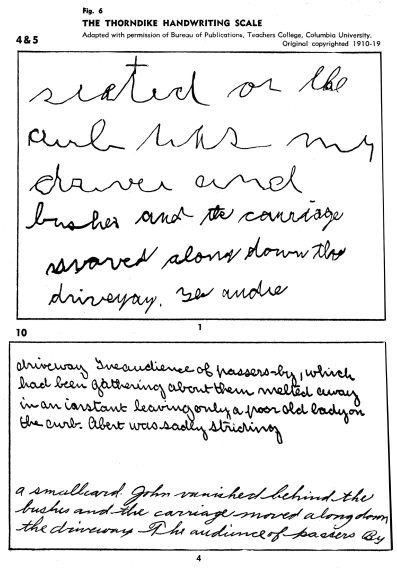 Fig. 6
THE THORNDIKE HANDWRITING SCALE
Adapted with permission of Bureau of Publications, Teachers College, Columbia University.
Original copyrighted 1910-19
4&5
seated on the
curb was my
driver and
bushes and the carriage
moved along down the
driveway. The audie
1
10
driveway The audience of passers-by, which
had been gathering about them melted away
in an instant leaving only a poor old lady on
the curb. Albert was sadly striding
a small card. John vanished behind the
bushes and the carriage moved along down
the driveway The audience of passers By
4